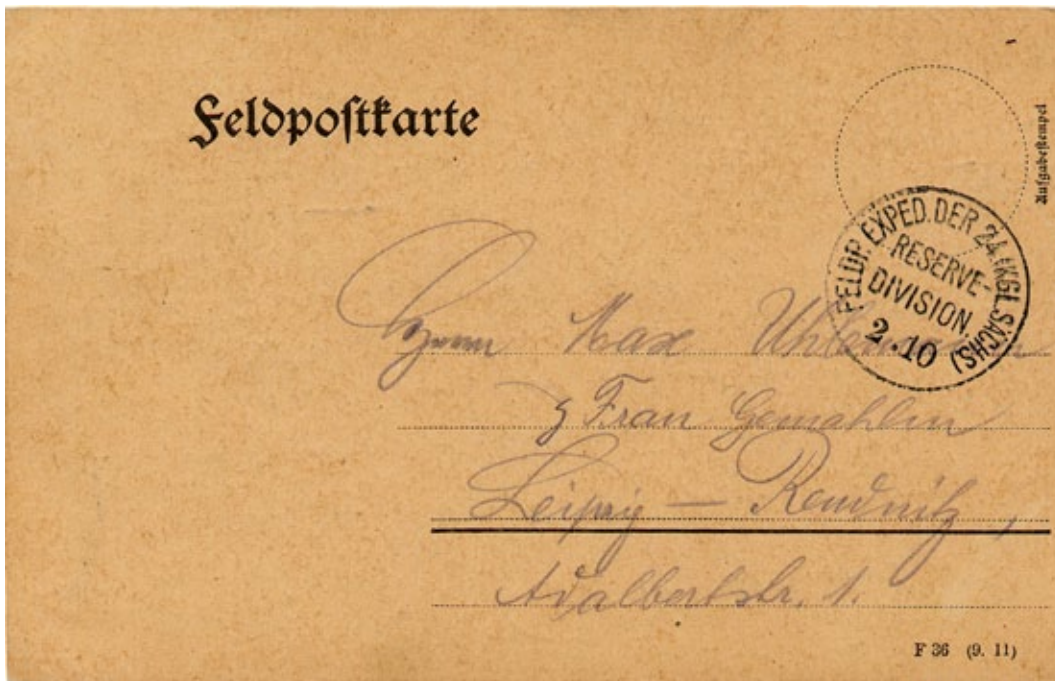 Feldpostkarte
Aufgabestempel
FELDP. EXPED. DER 24. (KGL. SÄCHS)
RESERVE-
DIVISION.
2.10
Herrn Max
Frau Gemahlin
Leipzig – Reudnitz,
Adalbertstr. 1.
F 36 (9. 11)